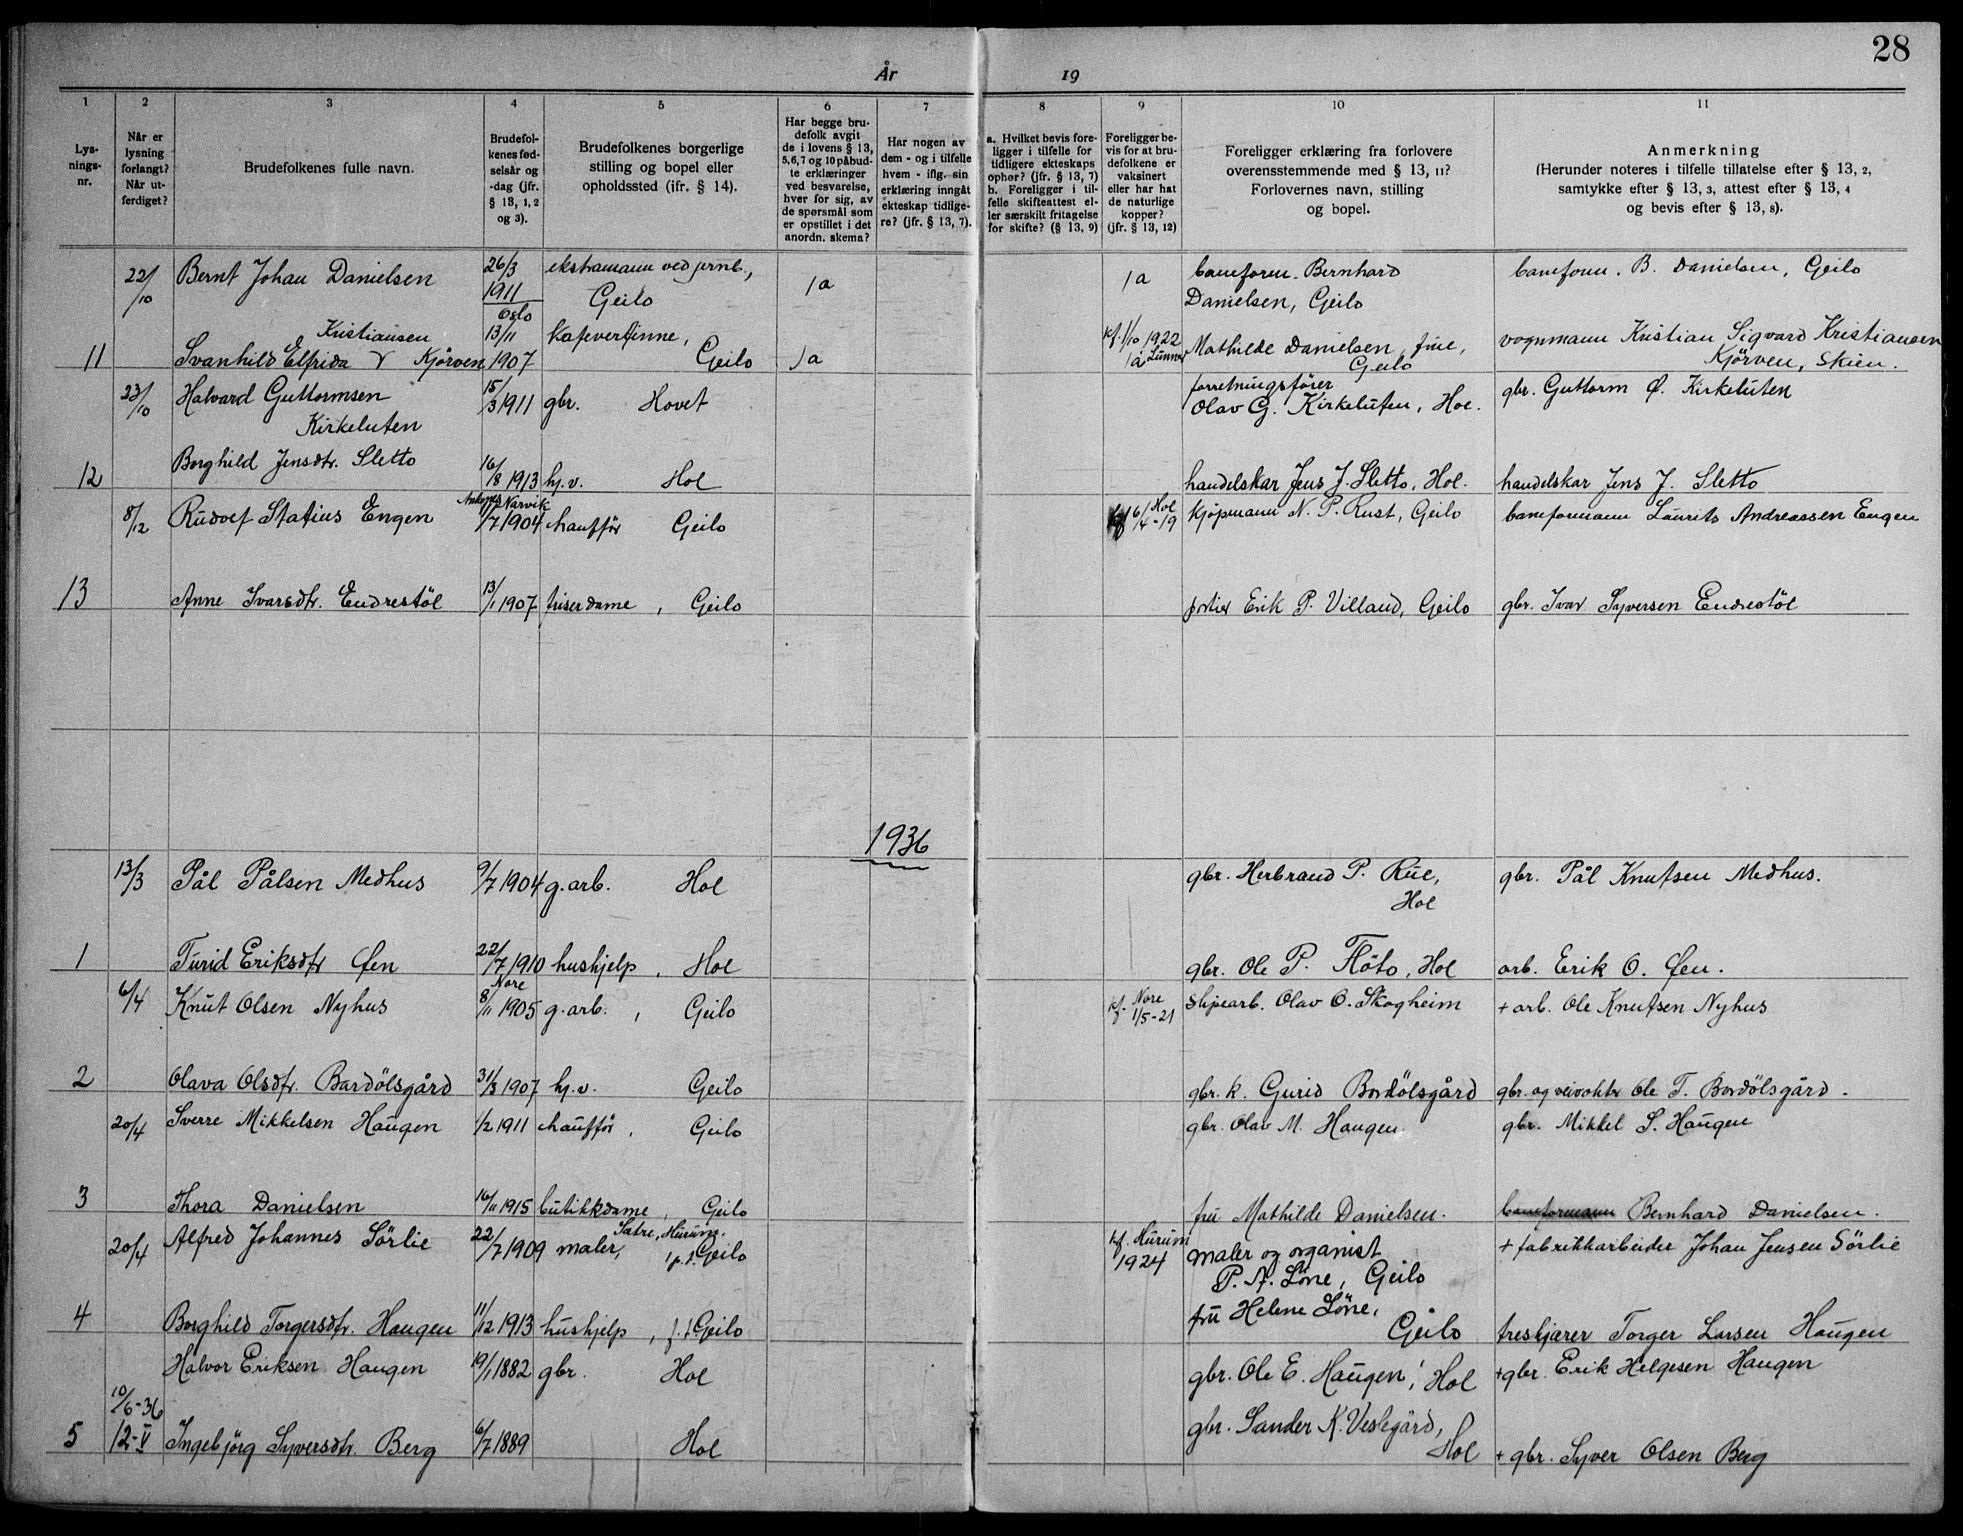 28
År 19
1 2 3 4 5 6 7 8 9 10 11
Lys-
nings-
nr.
Når er
lysning
forlangt?
Når ut-
ferdiget?
Brudefolkenes fulle navn.
Brudefol-
kenes fød-
selsår og
-dag (jfr.
§ 13, 1, 2
og 3).
Brudefolkenes borgerlige
stilling og bopel eller
opholdssted (ifr. § 14).
Har begge bru-
defolk avgit
de i lovens § 13,
5,6,7 og 10 påbud-
te erklæringer
ved besvarelse,
hver for sig, av
de spørsmål som
er opstillet i det
anordn. skema?
Har nogen av
dem - og i tilfelle
hvem - iflg. sin
erklæring inngåt
ekteskap tidlige-
re? (jfr. § 13, 7).
a. Hvilket bevis fore-
ligger i tilfelle for
tidligere ekteskaps
ophør? (jfr. § 13, 7)
b. Foreligger i til-
felle skifteattest el-
ler særskilt fritagelse
for skifte? (§ 13, 9)
Foreligger be-
vis for at bru-
defolkene er
vaksinert
eller har hat
de naturlige
kopper?
(jfr. § 13, 12)
Foreligger erklæring fra forlovere
overensstemmende med § 13, 11?
Forlovernes navn, stilling
og bopel.
Anmerkning
(Herunder noteres i tilfelle tillatelse efter § 13, 2,
samtykke efter § 13, 3, attest efter § 13, 4
og bevis efter § 13, 8).
22/10 Bernt Johan Danielsen 26/3 1911 Oslo ekstramann ved jernb., Geilo Ja Ja baneform. Bernhard
Danielsen, Geilo baneform. B. Danielsen, Geilo
11 Svanhild Elfrida Kristiansen Kjörven 13/11 1907 kafevertinne, Geilo Ja kf. 1/10 1922 Ja Lunner Mathilde Danielsen, frue,
Geilo vognmann Kristian Sigvard Kristiansen
Kjörven, Skien.
23/10 Halvard Guttormsen
Kirkeluten 15/3 1911 gbr. Hovet forretningsfører
Olav G. Kirkeluten, Hol. gbr. Guttorm O. Kirkeluten
12 Borghild Jensdtr. Sletto 16/8 1913 hj.v. Hol handelskar Jens J. Sletto, Hol. handelskar Jens J. Sletto
8/12 Rudolf Statius Engen Ankenes Narvik /7 1904 chauffør Geilo kf 6/4-19 Hol kjøpmann N. P. Rust, Geilo baneformann Laurits Andreassen Engen
13 Anne Ivarsdtr. Endrestöl 13/1 1907 friserdame, Geilo portier Erik P. Villand, Geilo gbr. Ivar Syversen Endrestöl
1936
13/3 Pål Pålsen Medhus 9/7 1904 g.arb. Hol gbr. Herbrand P. Rue,
Hol gbr. Pål Knutsen Medhus.
1 Turid Eriksdtr Øen 22/7 1910 hushjelp, Hol gbr. Ole P. Flöto, Hol arb. Erik O. Øen.
6/4 Knut Olsen Nyhus Nore 8/11 1905 g.arb., Geilo kf. Nore 1/5-21 slipearb. Olav O. Skogheim + arb. Ole Knutsen Nyhus
2 Olava Olsdtr. Bardölsgård 31/3 1907 hj.v. Geilo gbr. k. Gurid Bardölsgård gbr. og veivokter Ole T. Bardölsgård.
20/4 Sverre Mikkelsen Haugen 1/2 1911 chauffør, Geilo gbr. Olav M. Haugen. gbr. Mikkel S. Haugen
3 Thora Danielsen 16/11 1915 butikkdame, Geilo fru Mathilde Danielsen. baneformann Bernhard Danielsen.
20/4 Alfred Johannes Sörlie 22/7 1909 maler, Sætre, Hurum. p.t. Geilo kf. Hurum 1924 maler og organist
P. A. Löne, Geilo + fabrikkarbeider Johan Jensen Sörlie
4 Borghild Torgersdtr. Haugen 11/12 1913 hushjelp, p.t. Geilo fru Helene Löne,
Geilo treskjærer Torger Larsen Haugen
Halvor Eriksen Haugen 19/1 1882 gbr. Hol gbr. Ole E. Haugen, Hol + gbr. Erik Helgesen Haugen
10/6-36
5 12-V Ingebjörg Syversdtr. Berg 6/7 1889 Hol gbr. Sander K. Veslegård,
Hol + gbr. Syver Olsen Berg